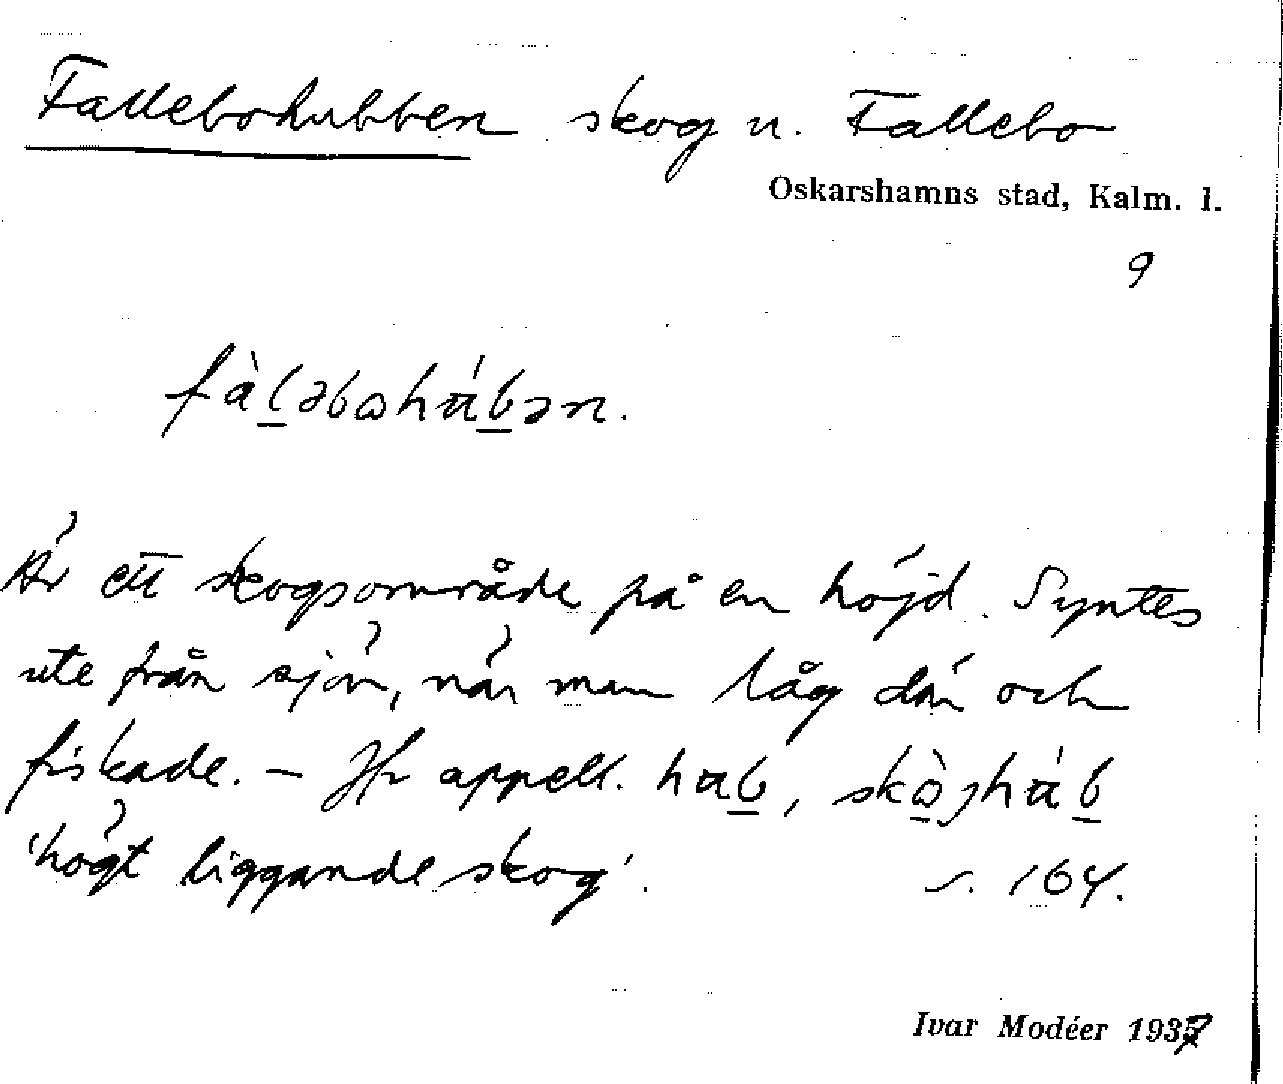 Fallebohubben skog n. Fallebo
Oskarshamns stad, Kalm. l.
9
fàləbωhábən.
Är ett skogsområde på en höjd. Syntes
ute från sjön, när man låg där och
fiskade. – Jfr appell. hab, skòjháb
'högt liggande skog'. s. 164.
Ivar Modéer 1937